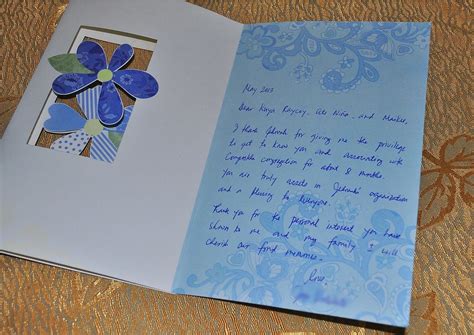 May 2013
Dear Kuya Raycoy, Ate Niña, and Markee,
I thank Jehovah for giving me the privilege
to get to know you and accounting work
congregation for about 8 months.
You are truly assets in Jehovah's organization
and a blessing to everyone.
Thank you for the personal interest you have
shown to me and my family. I will
cherish our fond memories.
love,